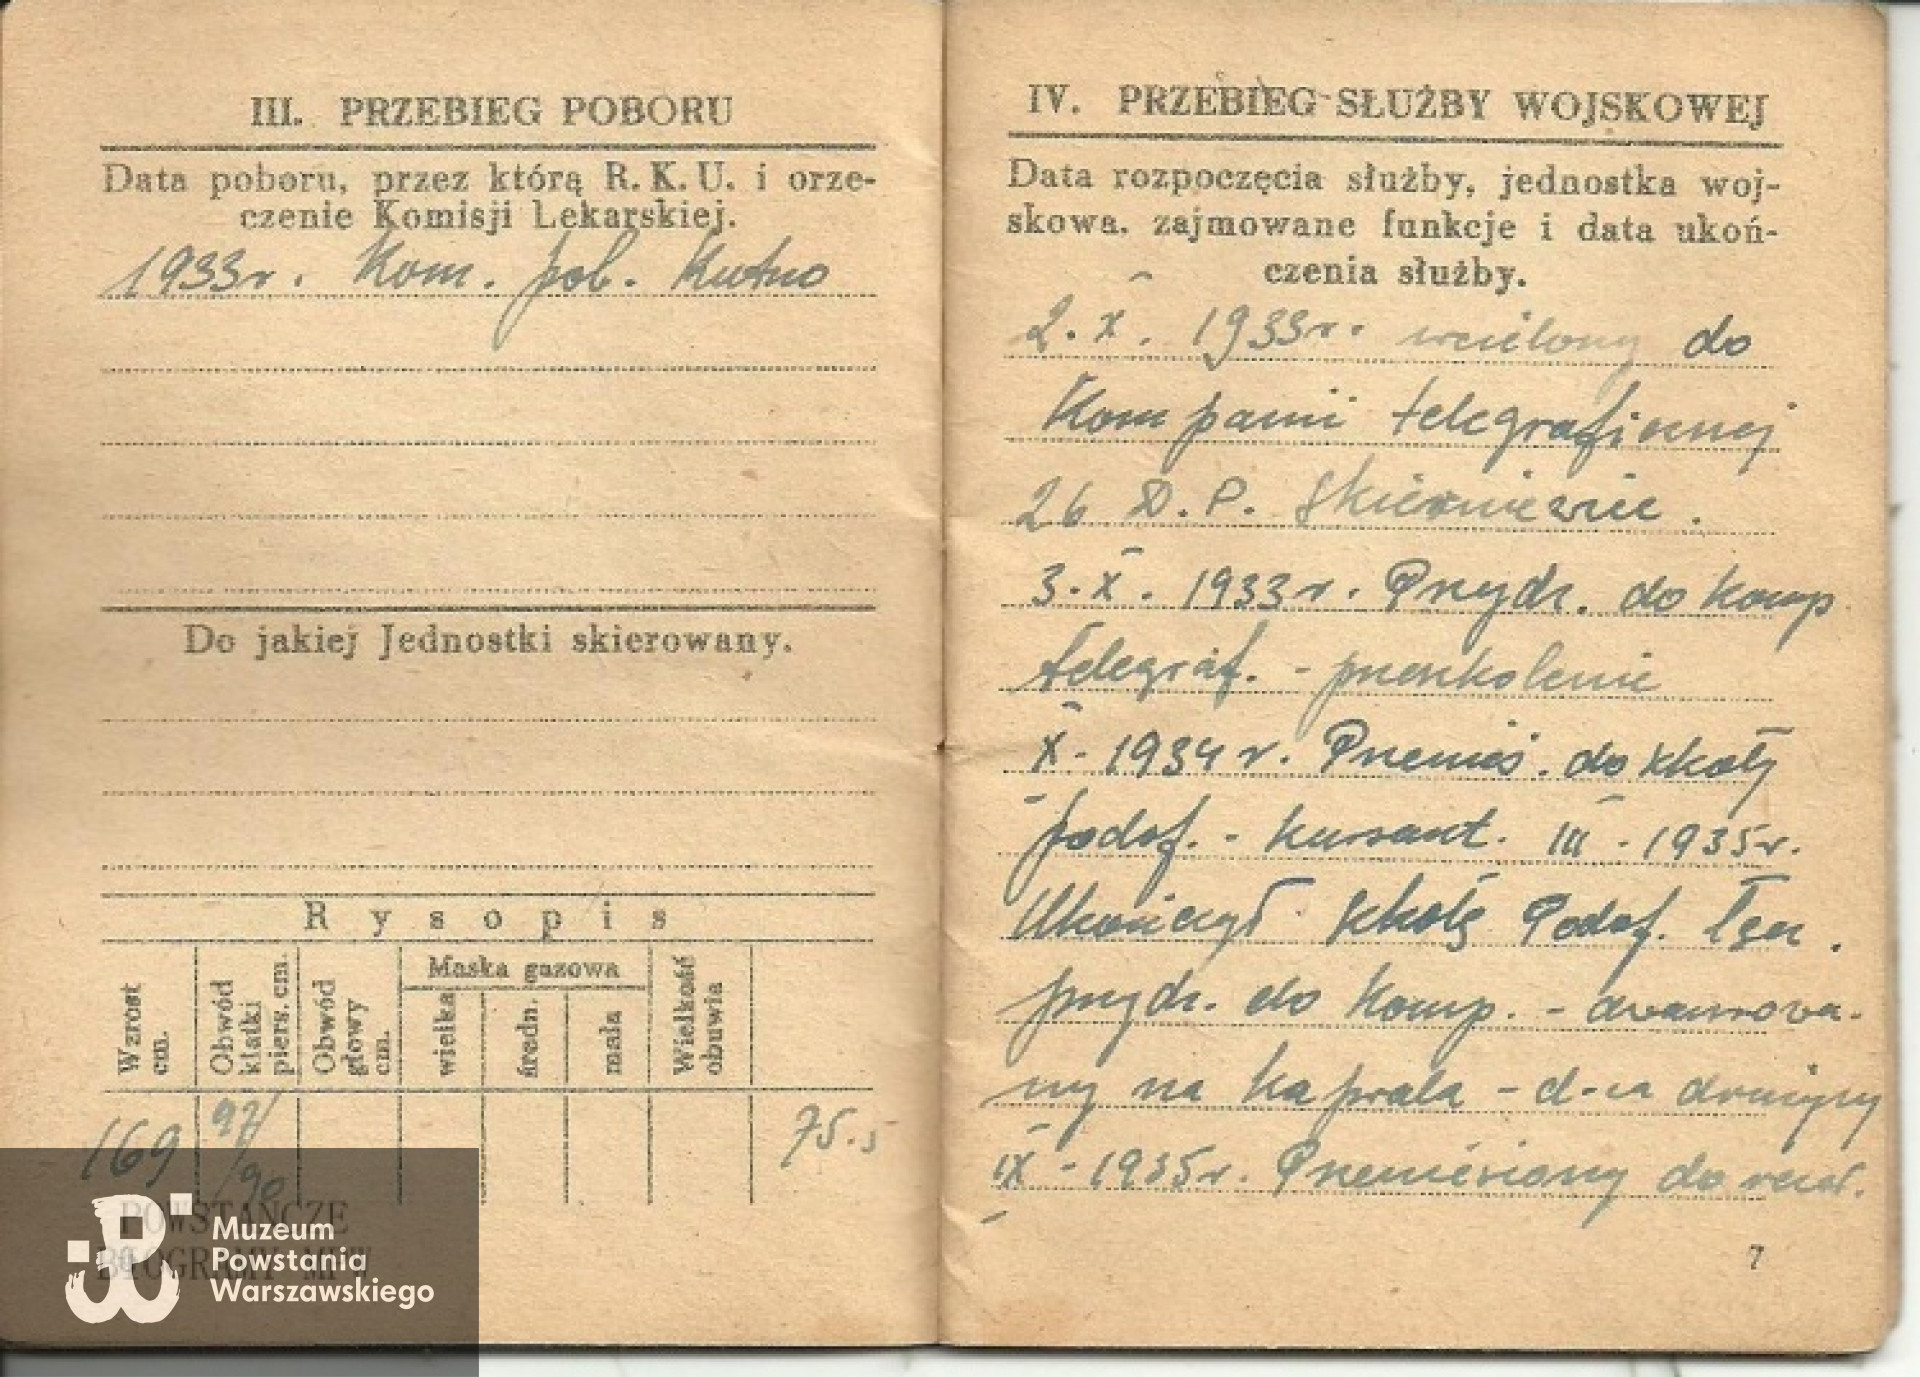 III. PRZEBIEG POBORU
Data poboru, przez którą R. K. U. i orze-
czenie Komisji Lekarskiej.
1933r. Kom. pob. Kutno
Do jakiej Jednostki skierowany.
Rysopis
Wzróst cm.
Obwód klatki piers. cm.
Obwód głowy cm.
Maska gazowa
wielka
średn.
mała
Wielkość obuwia
169
97/90
75.5
POWSTAŃCZE
BIOGRAMY MPW
Muzeum
Powstania
Warszawskiego
IV. PRZEBIEG SŁUŻBY WOJSKOWEJ
Data rozpoczęcia służby, jednostka woj-
skowa, zajmowane funkcje i data ukoń-
czenia służby.
2. X. 1933r. wcielony do
Kompanii telegraficznej
26 D.P. Skierniewice.
3. X. 1933r. Przydz. do komp
telegraf. - przeszkolenie
X - 1934 r. Przenieś. do szkoły
podof. - kursant. III - 1935r.
Ukończył szkołę Podof. Łącz.
przydz. do komp. - awansowa-
ny na kaprala - d-ca drużyny
IX - 1935r. Przeniesiony do rezer.
7